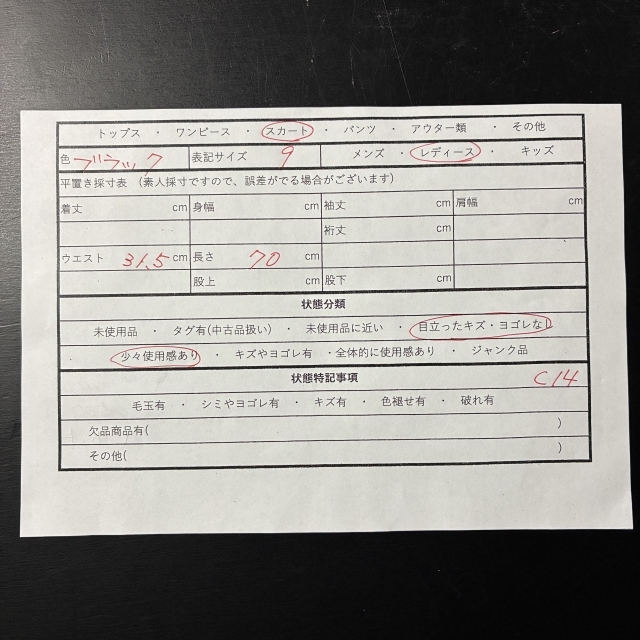 トップス ・ ワンピース ・ スカート ・ パンツ ・ アウター類 ・ その他
色 ブラック 表記サイズ 9 メンズ ・ レディース ・ キッズ
平置き採寸表 (素人採寸ですので、誤差がでる場合がございます)
着丈 cm 身幅 cm 袖丈 cm 肩幅 cm
裄丈 cm
ウエスト 31.5 cm 長さ 70 cm
股上 cm 股下 cm
状態分類
未使用品 ・ タグ有(中古品扱い) ・ 未使用品に近い ・ 目立ったキズ・ヨゴレなし
少々使用感あり ・ キズやヨゴレ有 ・全体的に使用感あり ・ ジャンク品
状態特記事項 C14
毛玉有 ・ シミやヨゴレ有 ・ キズ有 ・ 色褪せ有 ・ 破れ有
欠品商品有( )
その他( )